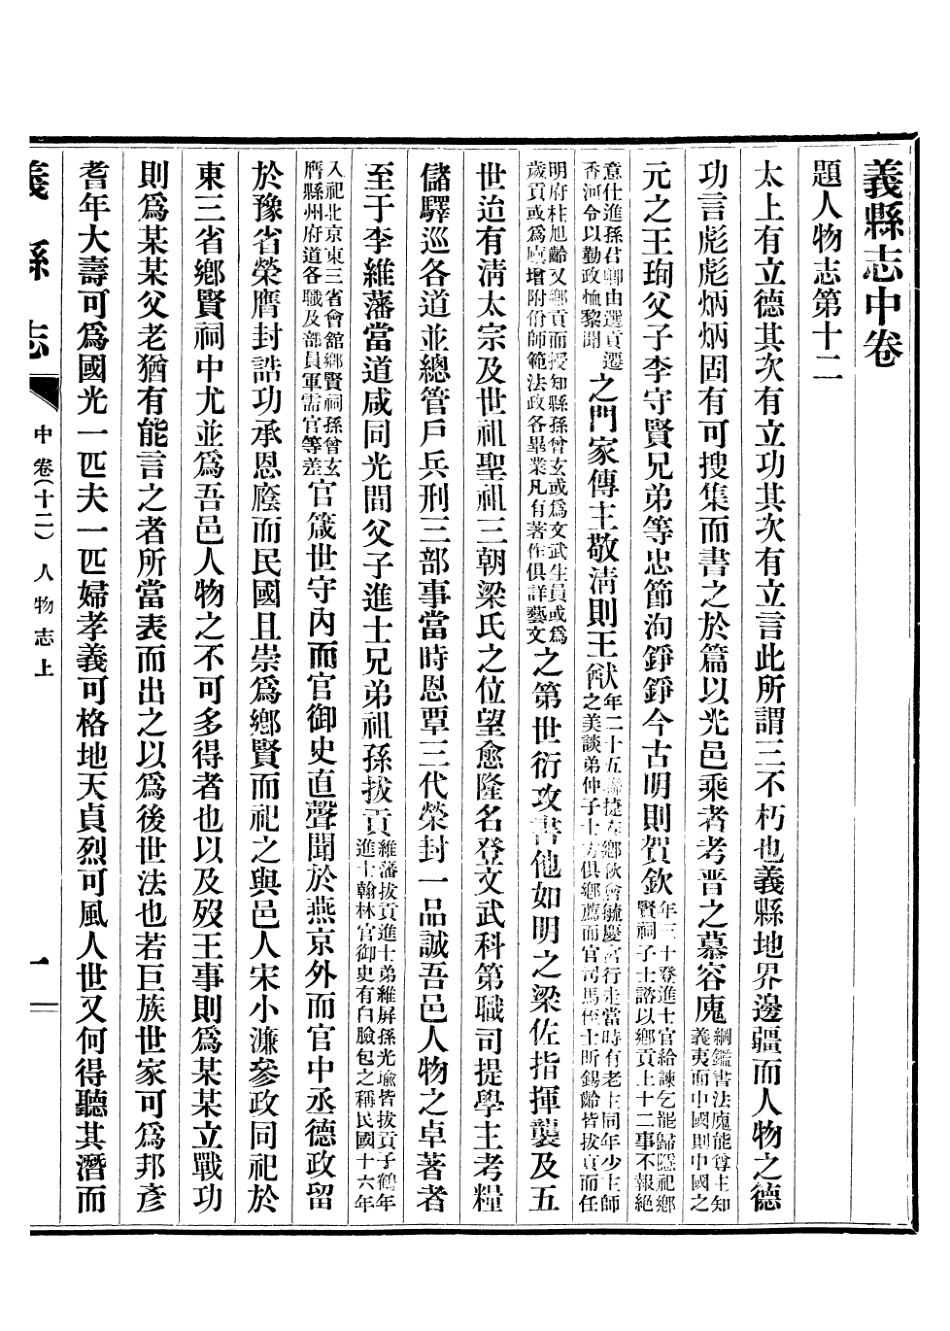 義縣志中卷
題人物志第十二
太上有立德其次有立功其次有立言此所謂三不朽也義縣地界邊疆而人物之德
功言彪彪炳炳固有可搜集而書之於篇以光邑乘者考晋之慕容廆綱鑑書法廆能尊主知義夷而中國則中國之
元之王珣父子李守賢兄弟等忠節洵錚錚今古明則賀欽年三十登進士官給諫乞罷歸隱祀鄉賢祠子士諮以鄉貢上十二事不報絕
意仕進孫君卿由選貢遷香河令以勤政恤黎聞之門家傳主敬淸則王猷年二十五聯捷在鄉飲會毓慶宮行走當時有老主同年少主師之美談弟仲子士俱鄉薦而官司馬侄士昕錫齡皆拔貢而任
明府柱旭齡又鄉貢而授知縣孫曾玄或爲文武生員或爲歲貢或爲廩增附佾師範法政各畢業凡有著作俱詳藝文之第世衍攻書他如明之梁佐指揮襲及五
世迨有淸太宗及世祖聖祖三朝梁氏之位望愈隆名登文武科第職司提學主考糧
儲驛巡各道並總管戶兵刑三部事當時恩覃三代榮封一品誠吾邑人物之卓著者
至于李維藩當道咸同光間父子進士兄弟祖孫拔貢維藩拔貢進士弟維屏孫光瑜皆拔貢子鶴年進士翰林官御史有白臉包之稱民國十六年
入祀北京東三省會舘鄉賢祠孫曾玄膺縣州府道各職及部員軍需官等差官箴世守內而官御史直聲聞於燕京外而官中丞德政留
於豫省榮膺封誥功承恩廕而民國且崇爲鄉賢而祀之與邑人宋小濂參政同祀於
東三省鄉賢祠中尤並爲吾邑人物之不可多得者也以及歿王事則爲某某立戰功
則爲某某父老猶有能言之者所當表而出之以爲後世法也若巨族世家可爲邦彥
耆年大壽可爲國光一匹夫一匹婦孝義可格地天貞烈可風人世又何得聽其潛而
義縣志 中卷(十二)人物志上 一